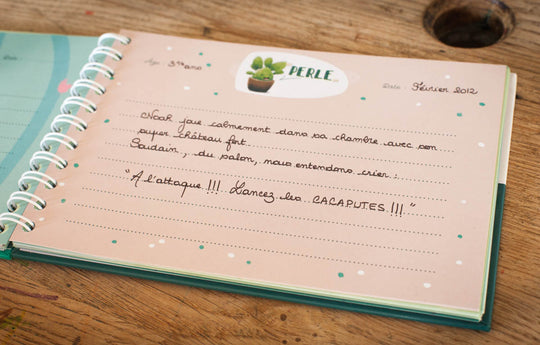 Age : 3 ans
PERLE
Date : Février 2012
Noah joue calmement dans sa chambre avec son
super château fort.
Soudain, du salon, nous entendons crier :
"A l'attaque !!! Lancez les CACAPUTES !!!"